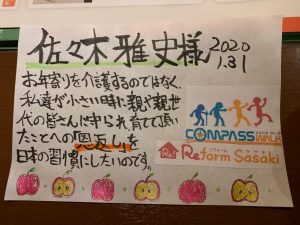 佐々木雅史様
2020
1.31
お年寄りを介護するのではなく、
私達が小さい時に親や親世
代の皆さんに守られ育てて頂い
たことへの恩返しを
日本の習慣にしたいのです。
COMPASS
WALK
リフォーム ササキ
Re! Reform Sasaki